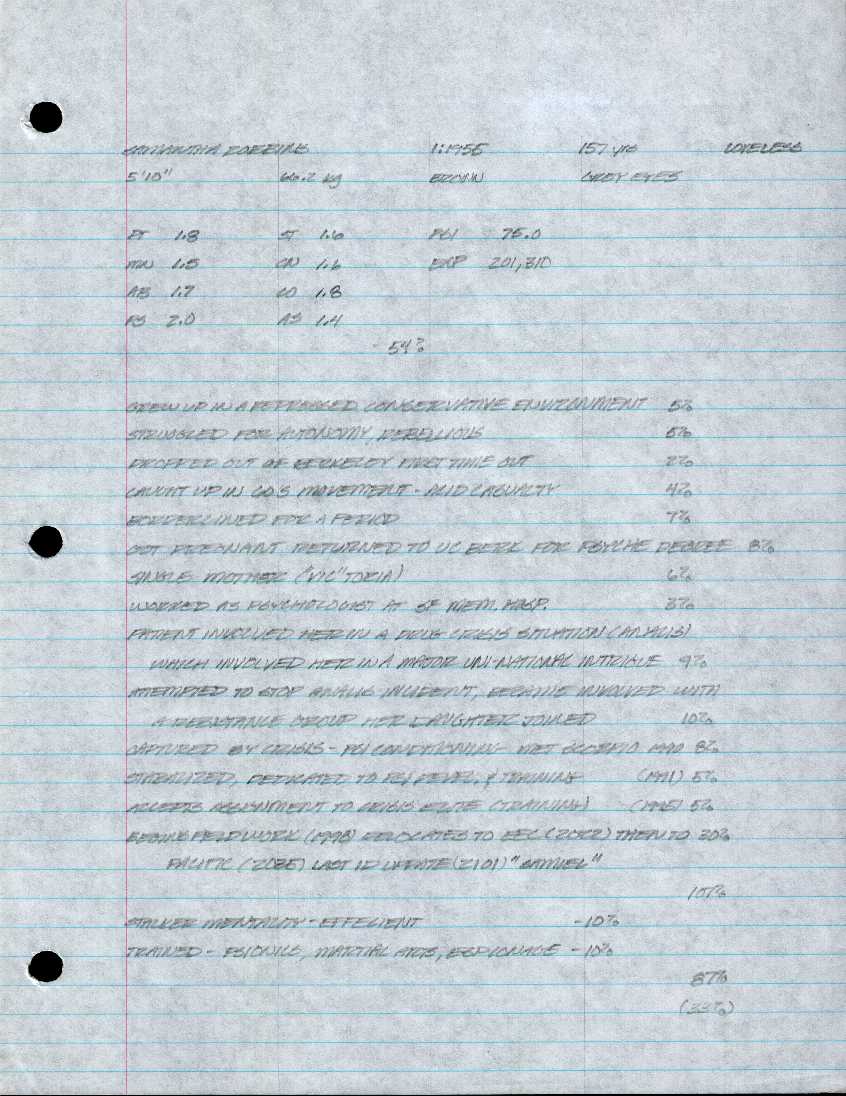 SAMANTHA ROBBINS 1:1955 157 yrs LOVELESS
5'10" 66.2 kg BROWN GREY EYES
PT 1.8 ST 1.6 PSI 75.0
MN 1.5 CN 1.6 EXP 201,310
AB 1.7 CO 1.8
PS 2.0 AS 1.4
54%
GREW UP IN A REPRESSED, CONSERVATIVE ENVIRONMENT 5%
STRUGGLED FOR AUTONOMY, REBELLIOUS 5%
DROPPED OUT OF BERKELEY FIRST TIME OUT 2%
CAUGHT UP IN 60'S MOVEMENT - ACID CASUALTY 4%
BORDERLINED FOR A PERIOD 7%
GOT PREGNANT RETURNED TO UC BERK FOR PSYCHE DEGREE 8%
SINGLE MOTHER ("VIC"TORIA) 6%
WORKED AS PSYCHOLOGIST AT SF MEM. HOSP. 3%
PATIENT INVOLVED HER IN A DRUG CRISIS SITUATION (ANALIS)
WHICH INVOLVED HER IN A MAJOR UNI-NATIONAL INTRIGUE 9%
ATTEMPTED TO STOP ANALIS INCIDENT, BECAME INVOLVED WITH
A RESISTANCE GROUP HER DAUGHTER JOINED 10%
CAPTURED BY CRISIS - PSI CONDITIONING MET 1990 8%
STABALIZED, DEDICATED TO PSI DEVEL. & TRAINING (1991) 5%
ACCEPTS ASSIGNMENT TO CRISIS ELITE (TRAINING) (1995) 5%
BEGINS FIELDWORK (1998) RELOCATES TO EEC (2022) THEN TO 30%
PACIFIC (2035) LAST ID UPDATE (2101) "SAMUEL"
107%
STALKER MENTALITY - EFFECIENT -10%
TRAINED - PSIONICS, MARTIAL ARTS, ESPIONAGE -10%
87%
(33%)